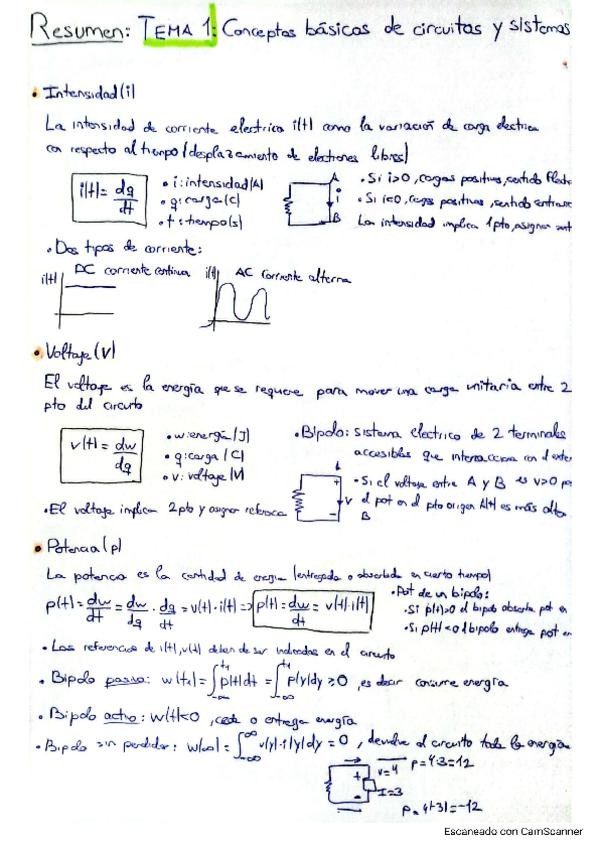 Resumen: TEMA 1: Conceptos básicos de circuitos y sistemas
• Intensidad (i)
La intensidad de corriente electrica i(t) como la variación de carga electrica
con respecto al tiempo (desplazamiento de electrones libres)
i(t) = dq/dt
• i: intensidad (A)
• q: carga (C)
• t: tiempo (s)
A
i
B
• Si i>0, cargas positivas, sentido flecha
• Si i<0, cargas positivas, sentido
La intensidad implica 1 pto, asignar
• Dos tipos de corriente:
i(t) DC corriente continua
i(t) AC corriente alterna
• Voltaje (V)
El voltaje es la energía que se requiere para mover una carga unitaria entre 2
pto del circuito
v(t) = dw/dq
• w: energía (J)
• q: carga (C)
• v: voltaje (V)
• El voltaje implica 2 pto y asignar referencia
• Bipolo: sistema electrico de 2 terminales
accesibles que interacciona con el exter
+
v
-
B
• Si el voltaje entre A y B es v>0
el pot en el pto origen A(+) es más alto
• Potencia (p)
La potencia es la cantidad de energia (entregada o absorbida en cierto tiempo)
p(t) = dw/dt = dw/dq · dq/dt = v(t)·i(t) => p(t) = dw/dt = v(t)·i(t)
• Pot de un bipolo:
• Si p(t)>0 el bipolo absorbe pot en
• Si p(t)<0 el bipolo entrega pot en
• Las referencias de i(t), v(t) deben de ser indicadas en el circuito
• Bipolo pasivo: w(t₁) = ∫_{-∞}^{t₁} p(t)dt = ∫_{-∞}^{t₁} p(y)dy ≥ 0, es decir consume energía
• Bipolo activo: w(t)<0, cede o entrega energía
• Bipolo sin perdidas: w(∞) = ∫_{-∞}^{∞} v(y)·i(y)dy = 0, devuelve al circuito toda la energía
+
-
v=4
I=3
p=4·3=12
p=4(-3)=-12
Escaneado con CamScanner